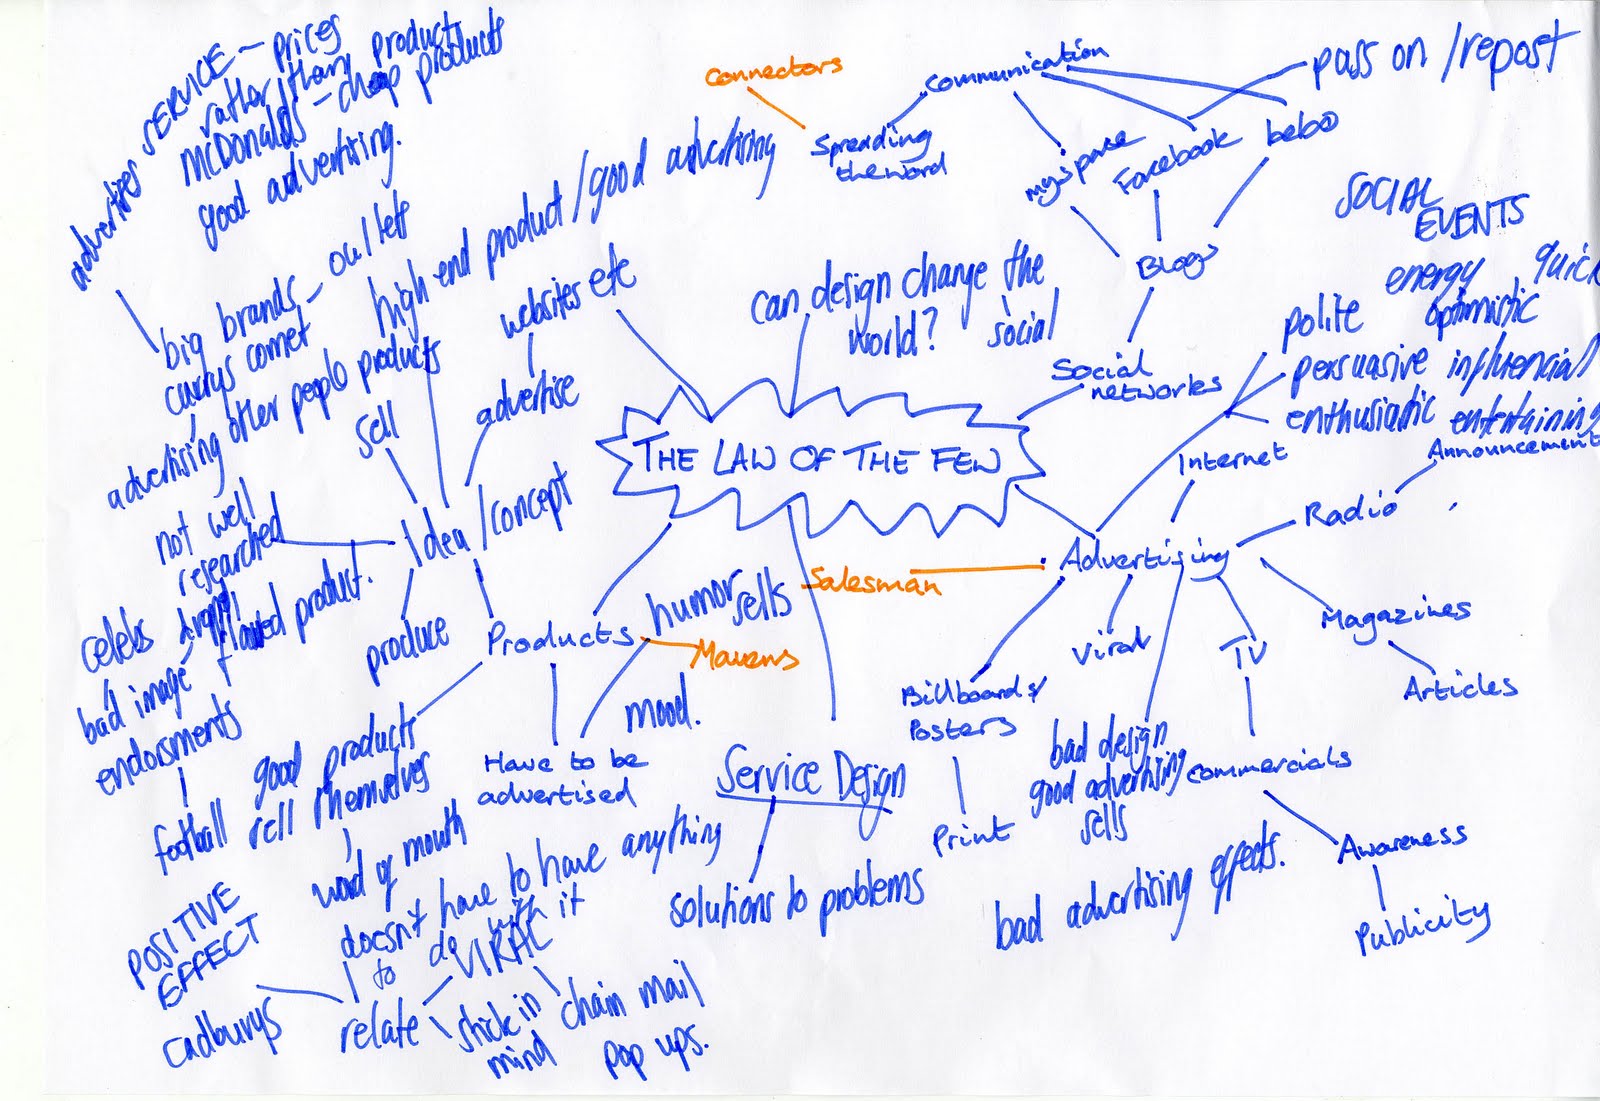 advertises SERVICE – prices
rather than product
McDonalds – cheap products
good advertising.
big brands – outlets
currys comet
advertising other people products
high end product / good advertising
websites etc
advertise
sell
Idea / concept
not well
researched
flawed product.
produce
celebs
bad image
endorsments
football
Products
humor sells
Mavens
mood.
Have to be
advertised
good products
sell themselves
word of mouth
doesn't have to have anything
to do with it
VIRAL
relate
stick in
mind
chain mail
pop ups.
POSITIVE
EFFECT
cadburys
THE LAW OF THE FEW
can design change the
world? social
Connectors
Spreading
the word
Communication
pass on / repost
myspace
Facebook
bebo
Blogs
Social
networks
SOCIAL
EVENTS
energy quick
polite optimistic
persuasive influencial
enthusiastic entertaining
Internet
Announcement
Radio
Salesman
Advertising
Magazines
Articles
Viral
TV
Billboards/
Posters
Print
bad design
good advertising
sells
commercials
Awareness
Publicity
bad advertising effects.
Service Design
solutions to problems